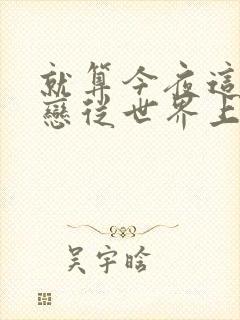 就算今夜這
戀從世界上
吴宇晗